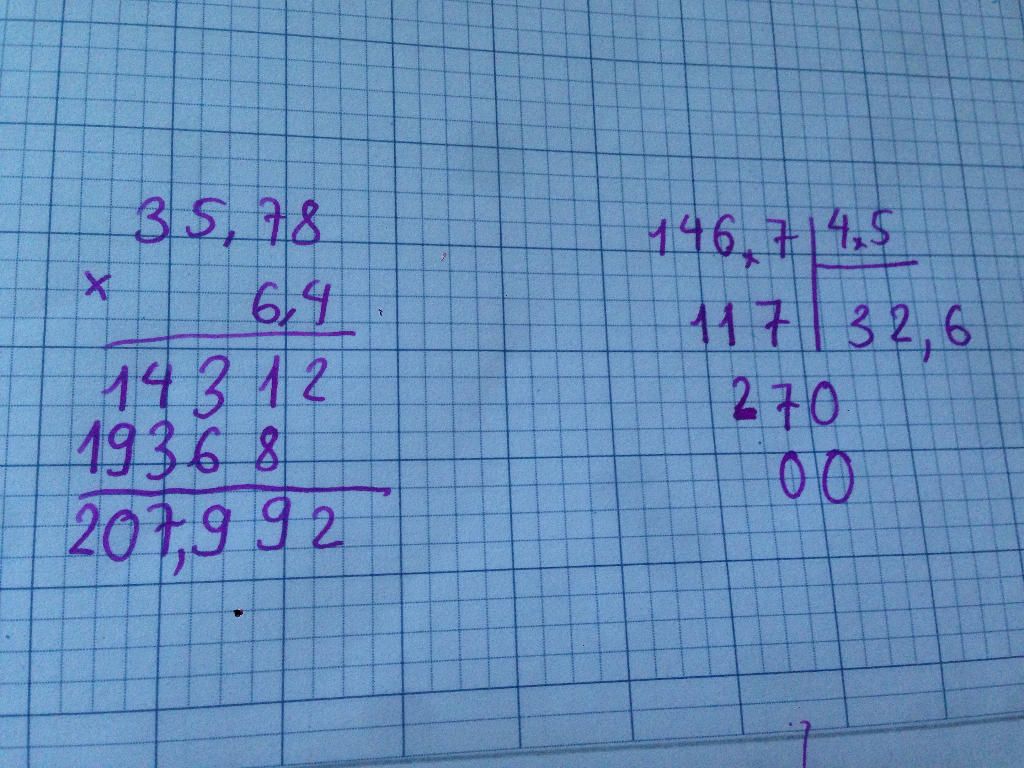 35,78
× 6,4
14312
19368
207,992
146,7 4,5
117 32,6
270
00